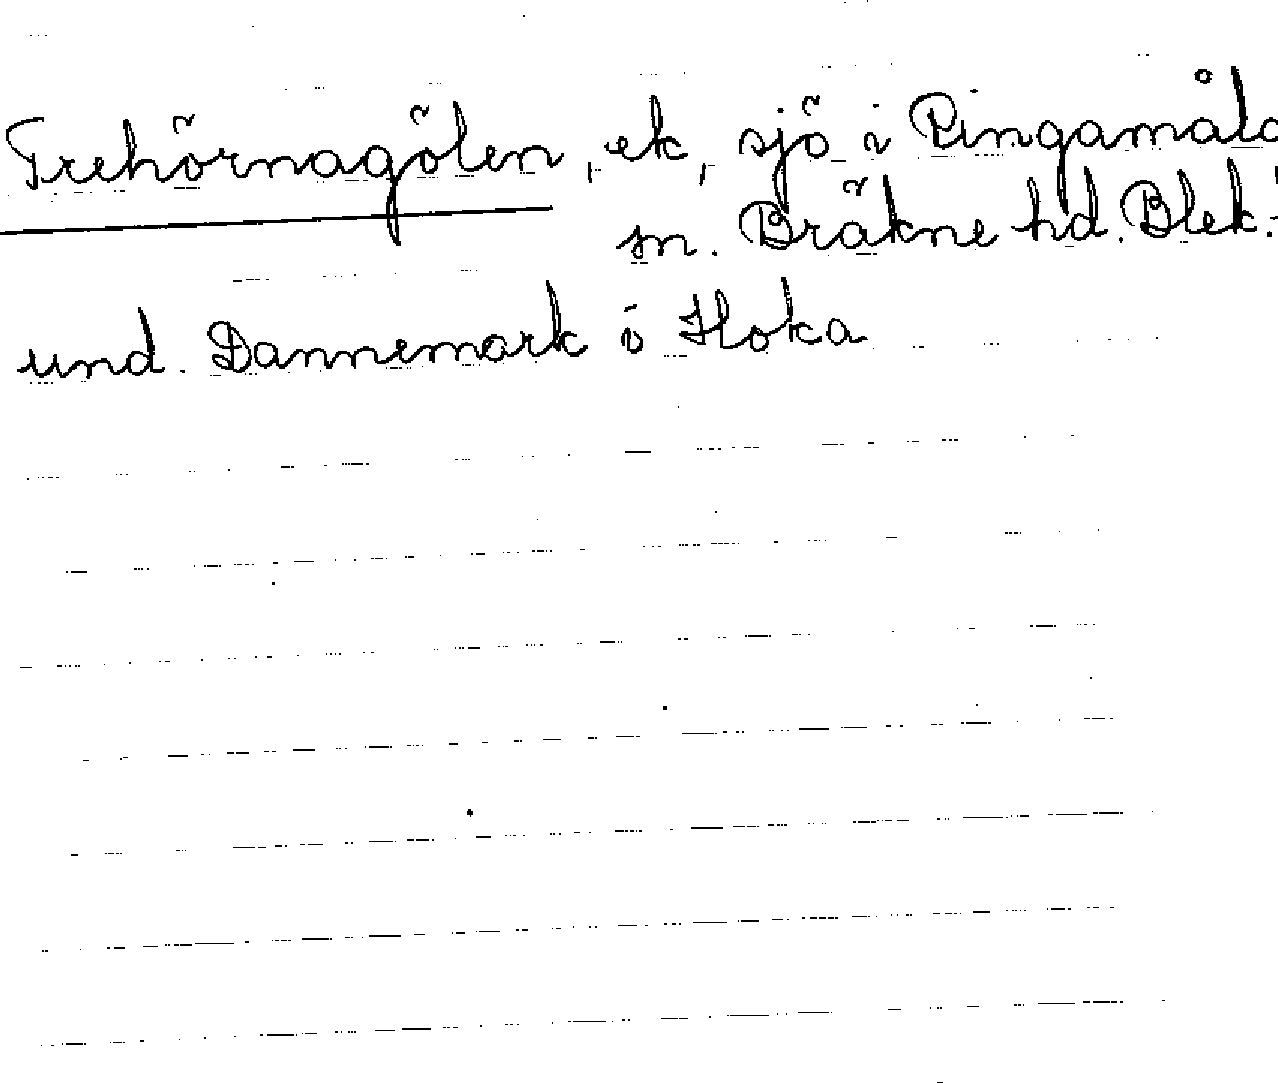 Trehörnagölen, ek, sjö i Ringamåla
sn. Bräkne hd. Blek.
und. Dannemark i Hoka